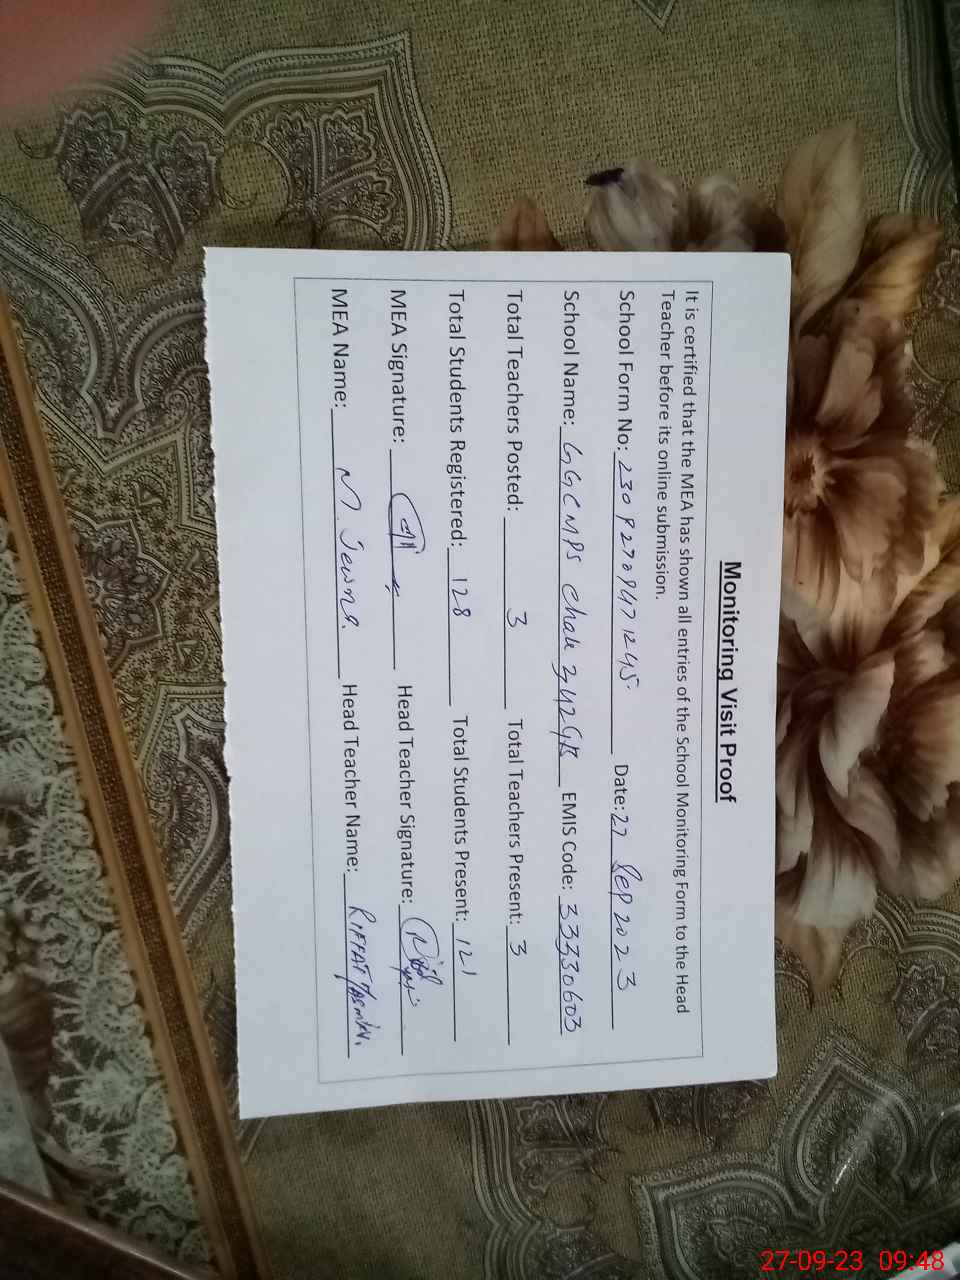 Monitoring Visit Proof
It is certified that the MEA has shown all entries of the School Monitoring Form to the Head
Teacher before its online submission.
School Form No: Date: 27 Sep 2023
School Name: GGCMPS Chak 242 GB EMIS Code: 33330603
Total Teachers Posted: 3 Total Teachers Present: 3
Total Students Registered: 128 Total Students Present: 121
MEA Signature: Head Teacher Signature:
MEA Name: Head Teacher Name: RIFFAT
27-09-23 09:48